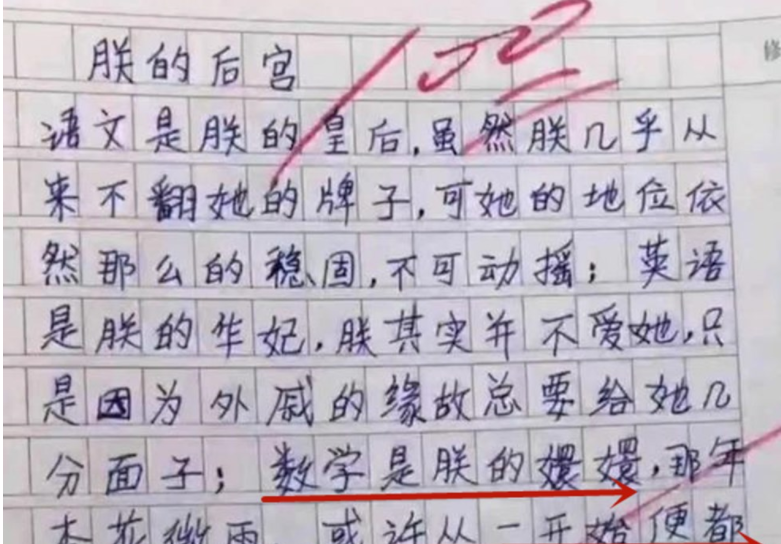 朕的后宫
100
修
语文是朕的皇后,虽然朕几乎从
来不翻她的牌子,可她的地位依
然那么的稳固,不可动摇;英语
是朕的华妃,朕其实并不爱她,只
是因为外戚的缘故总要给她几
分面子;数学是朕的嬛嬛,那年
杏花微雨,或许从一开始便都